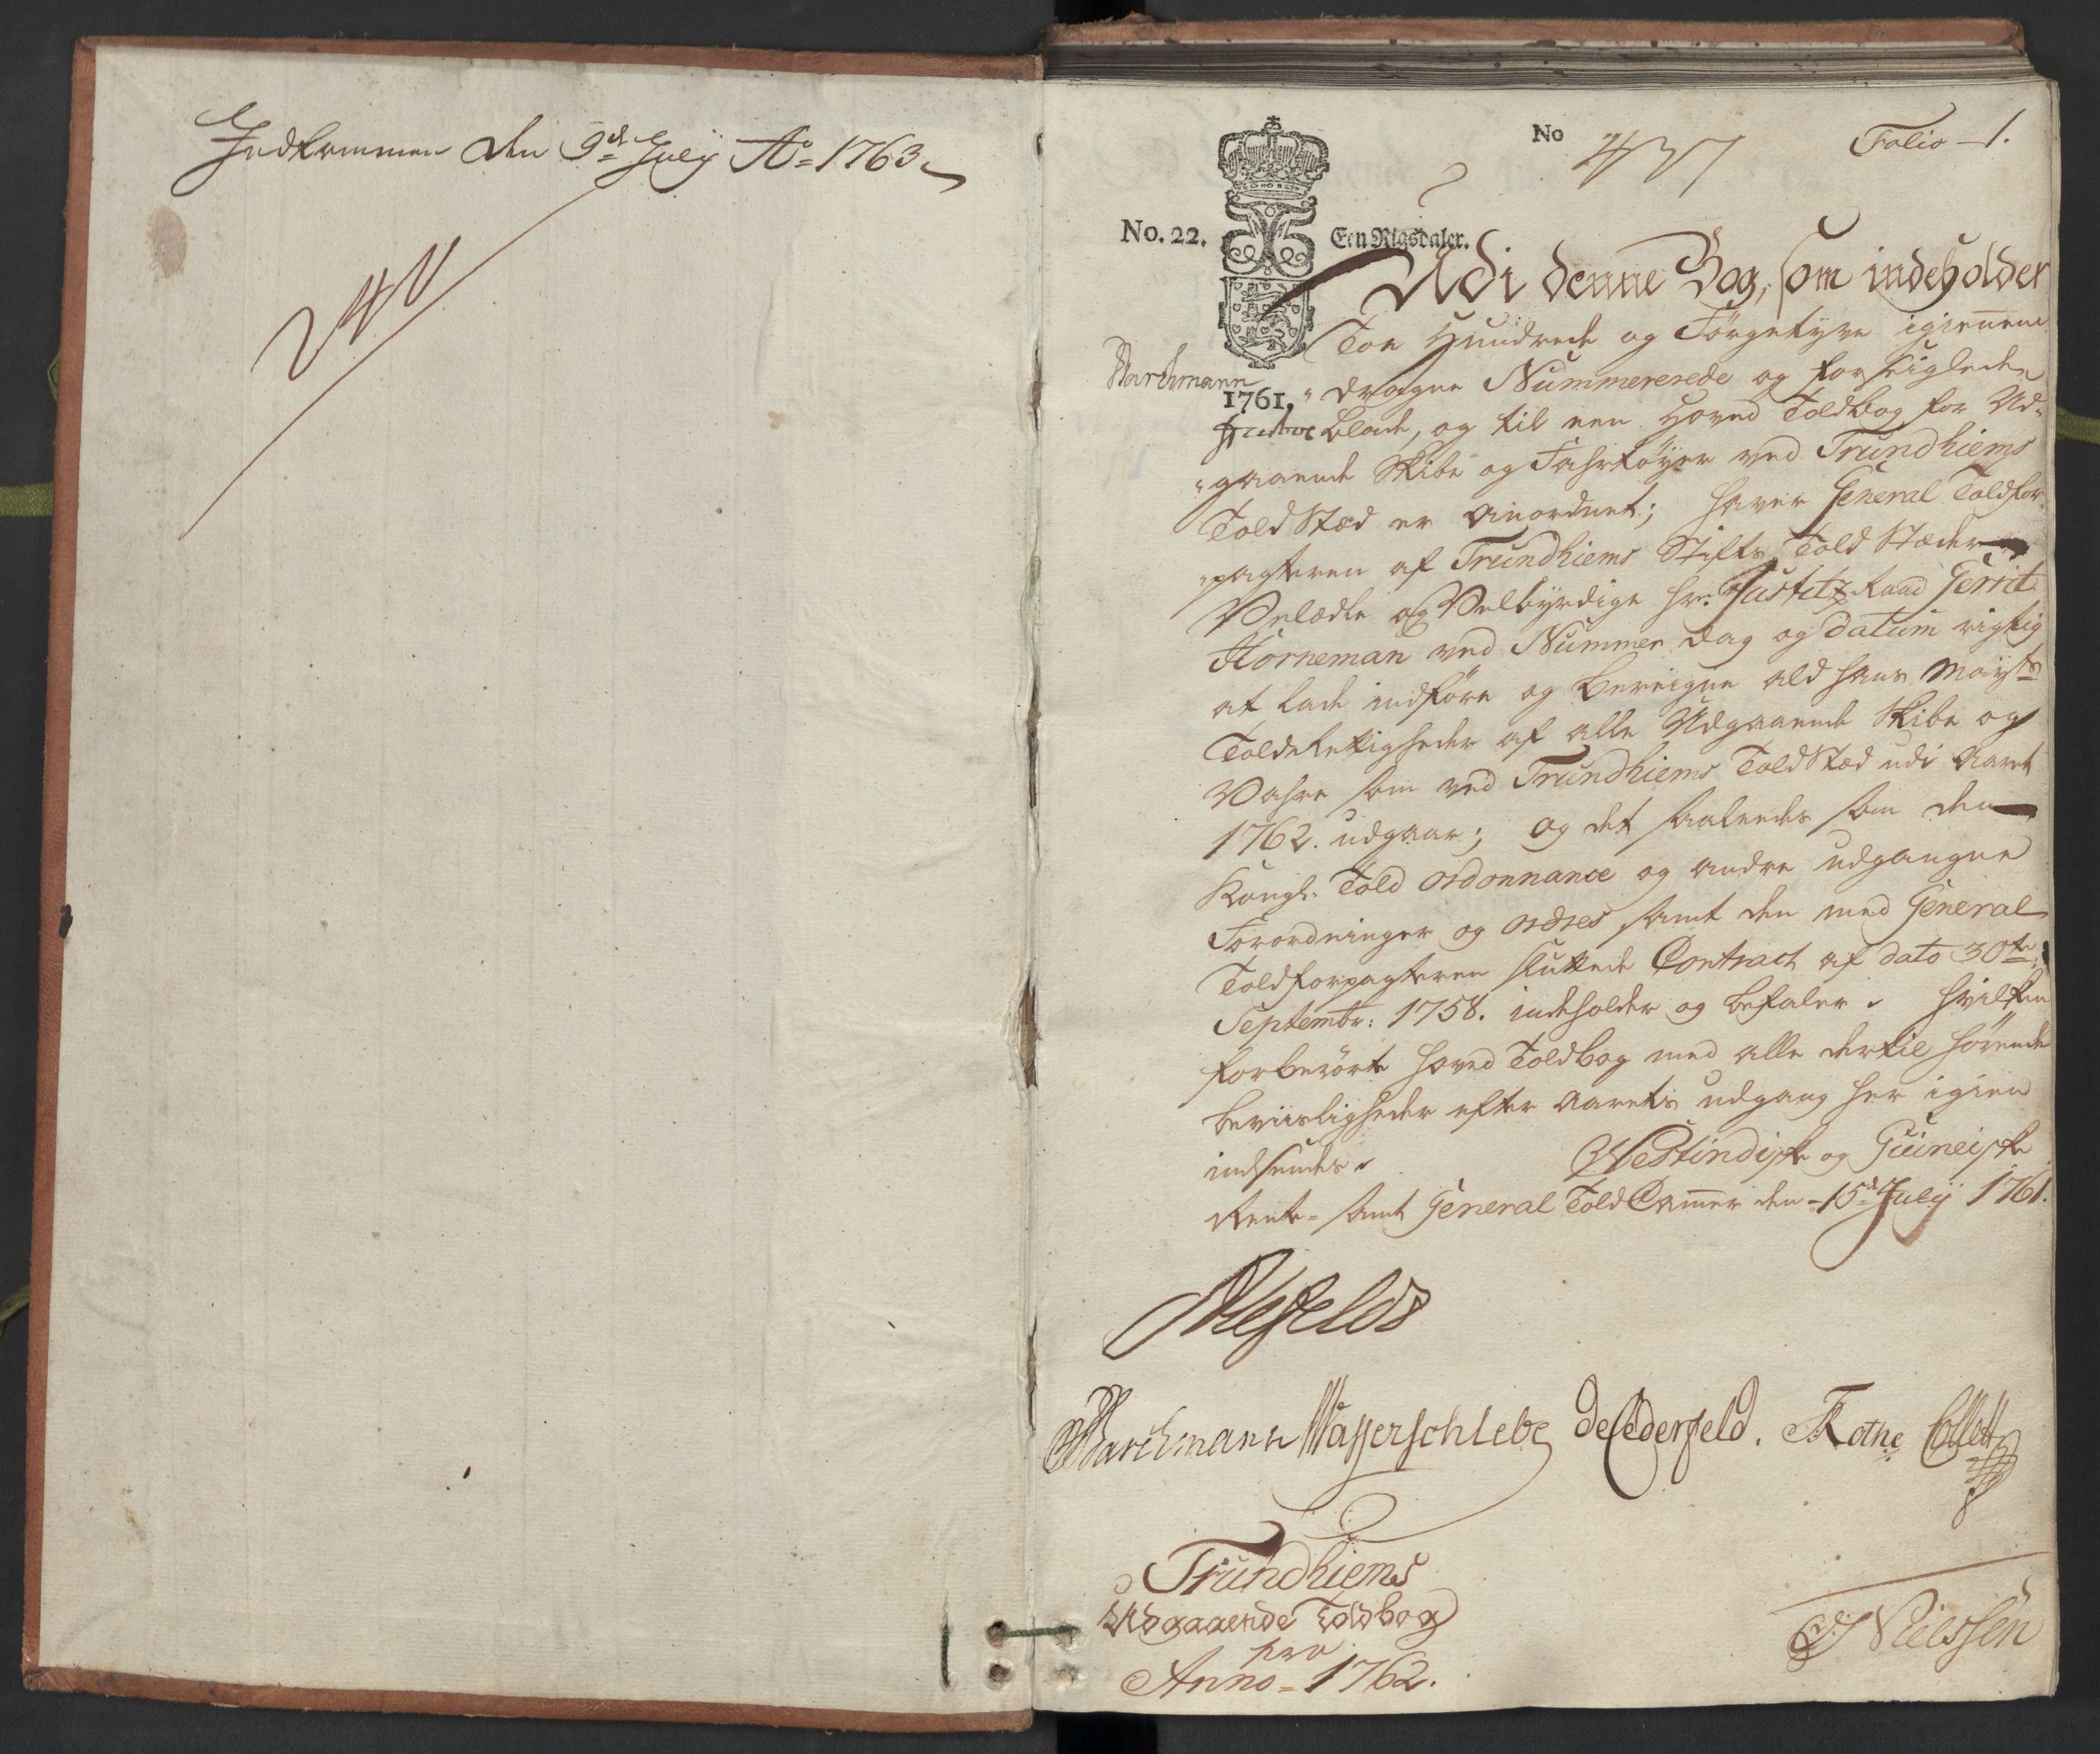 Indkommen den 9d. Julij Ao= 1763
No 437
Folio - 1.
No. 22. Een Rigsdaler.
Udi denne Bog, som indeholder
Toe Hundrede og Förgetyve igiennem
Barchmann
1761. dragne Nummererede og forseiglede
Blade, og til een Hoved Toldbog for Ud-
gaaende Skibe og Fahrtöyer ved Trundhiems
Told Stæd er anordnet; haver General Toldfor-
pagteren af Trundhiems Stifts Told Stæder
Velædle og Velbyrdige Hr: Justitz-Raad Gerrit
Horneman ved Nummer, dag og datum rigtig
at lade indföre og bereigne ald Hans Mayts
Toldrettigheder af alle Udgaaende Skibe og
Vahre som ved Trundhiems Told Stæd udi Aaret
1762. udgaar; og det saaledes som den
Kongl. Told Ordonnance og andre udgangne
Forordninger og Ordres samt den med General
Toldforpagteren sluttede Contract af dato 30te
Septembr: 1758. indeholder og befaler. Hvilken
forberörte Hoved Toldbog med alle dertil hörende
beviisligheder efter Aarets udgang her igien
indsendes.
Westindiske og Guineiske
Rente- samt General Told Cammer den 15d Julij 1761.
Barchmann Wasserschlebe de Cederfeld. Rothe Collett
Trundhiems
Udgaaende Toldbog
pro
Anno 1762.
Nielssen